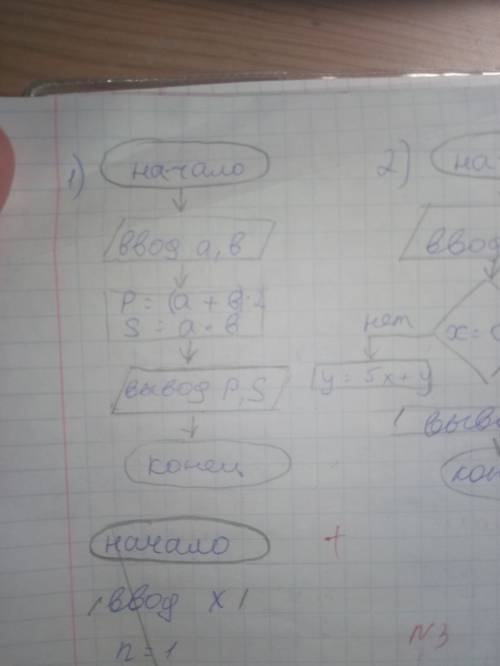 1) начало
ввод a, b
P = (a + b)·2
S = a · b
вывод P, S
конец
2) на
ввод
x =
нет
y = 5x + y
выв
кон
начало
+
ввод x
n = 1
N3